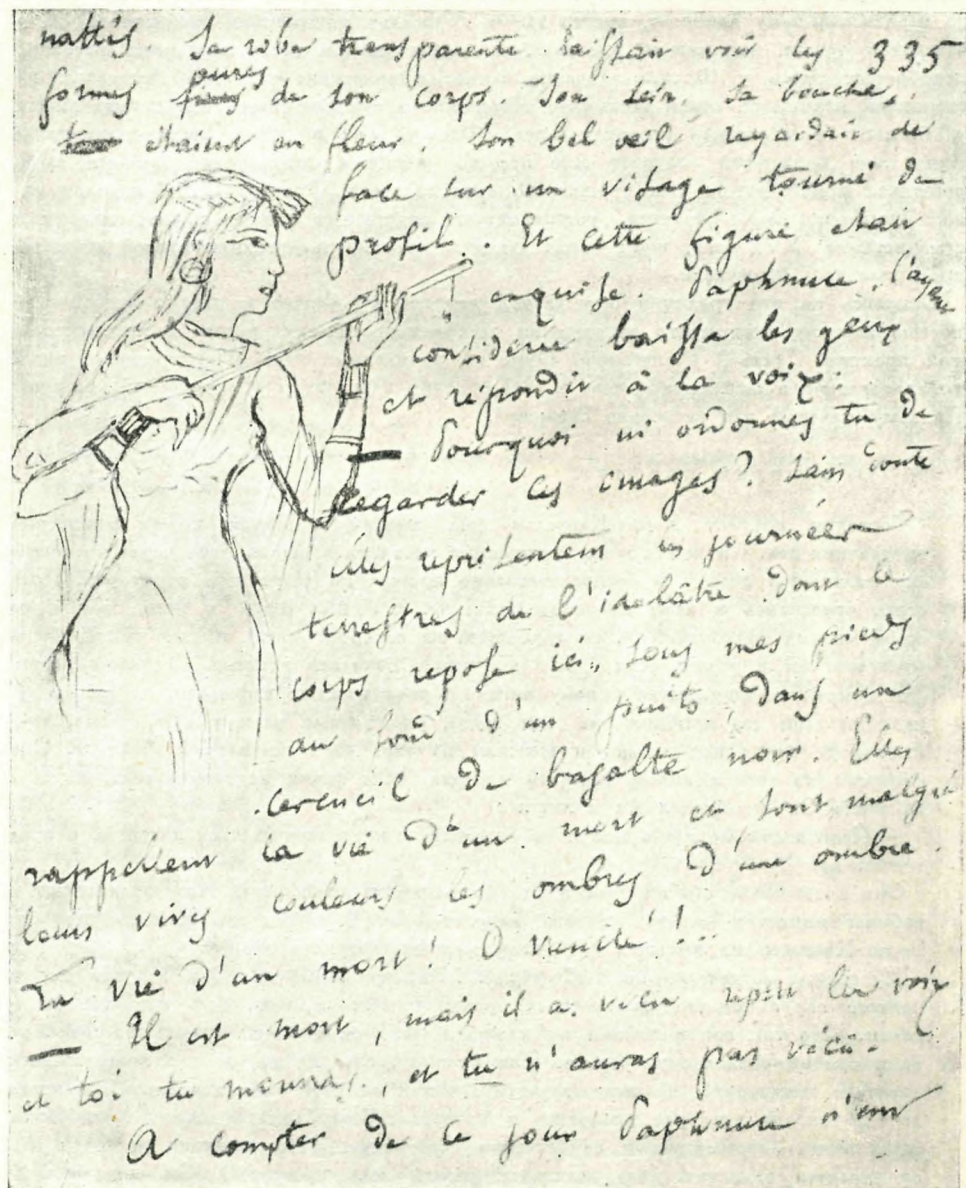 nattés. Sa robe transparente laissait voir les 335
formes pures de son corps. Son sein, sa bouche,
étaient en fleur. Son bel œil regardait de
face sur un visage tourné de
profil. Et cette figure était
exquise. Paphnuce, l'ayant
considérée baissa les yeux
et répondit à la voix:
— Pourquoi m'ordonnes tu de
regarder ces images? Sans doute
elles représentent les journées
terrestres de l'idolâtre dont le
corps repose ici, sous mes pieds
au fond d'un puits dans un
cercueil de basalte noir. Elles
rappellent la vie d'un mort et sont malgré
leurs vives couleurs les ombres d'une ombre.
La vie d'un mort! O vanité!
— Il est mort, mais il a vécu reprit la voix
et toi, tu mourras, et tu n'auras pas vécu.
A compter de ce jour Paphnuce n'eut